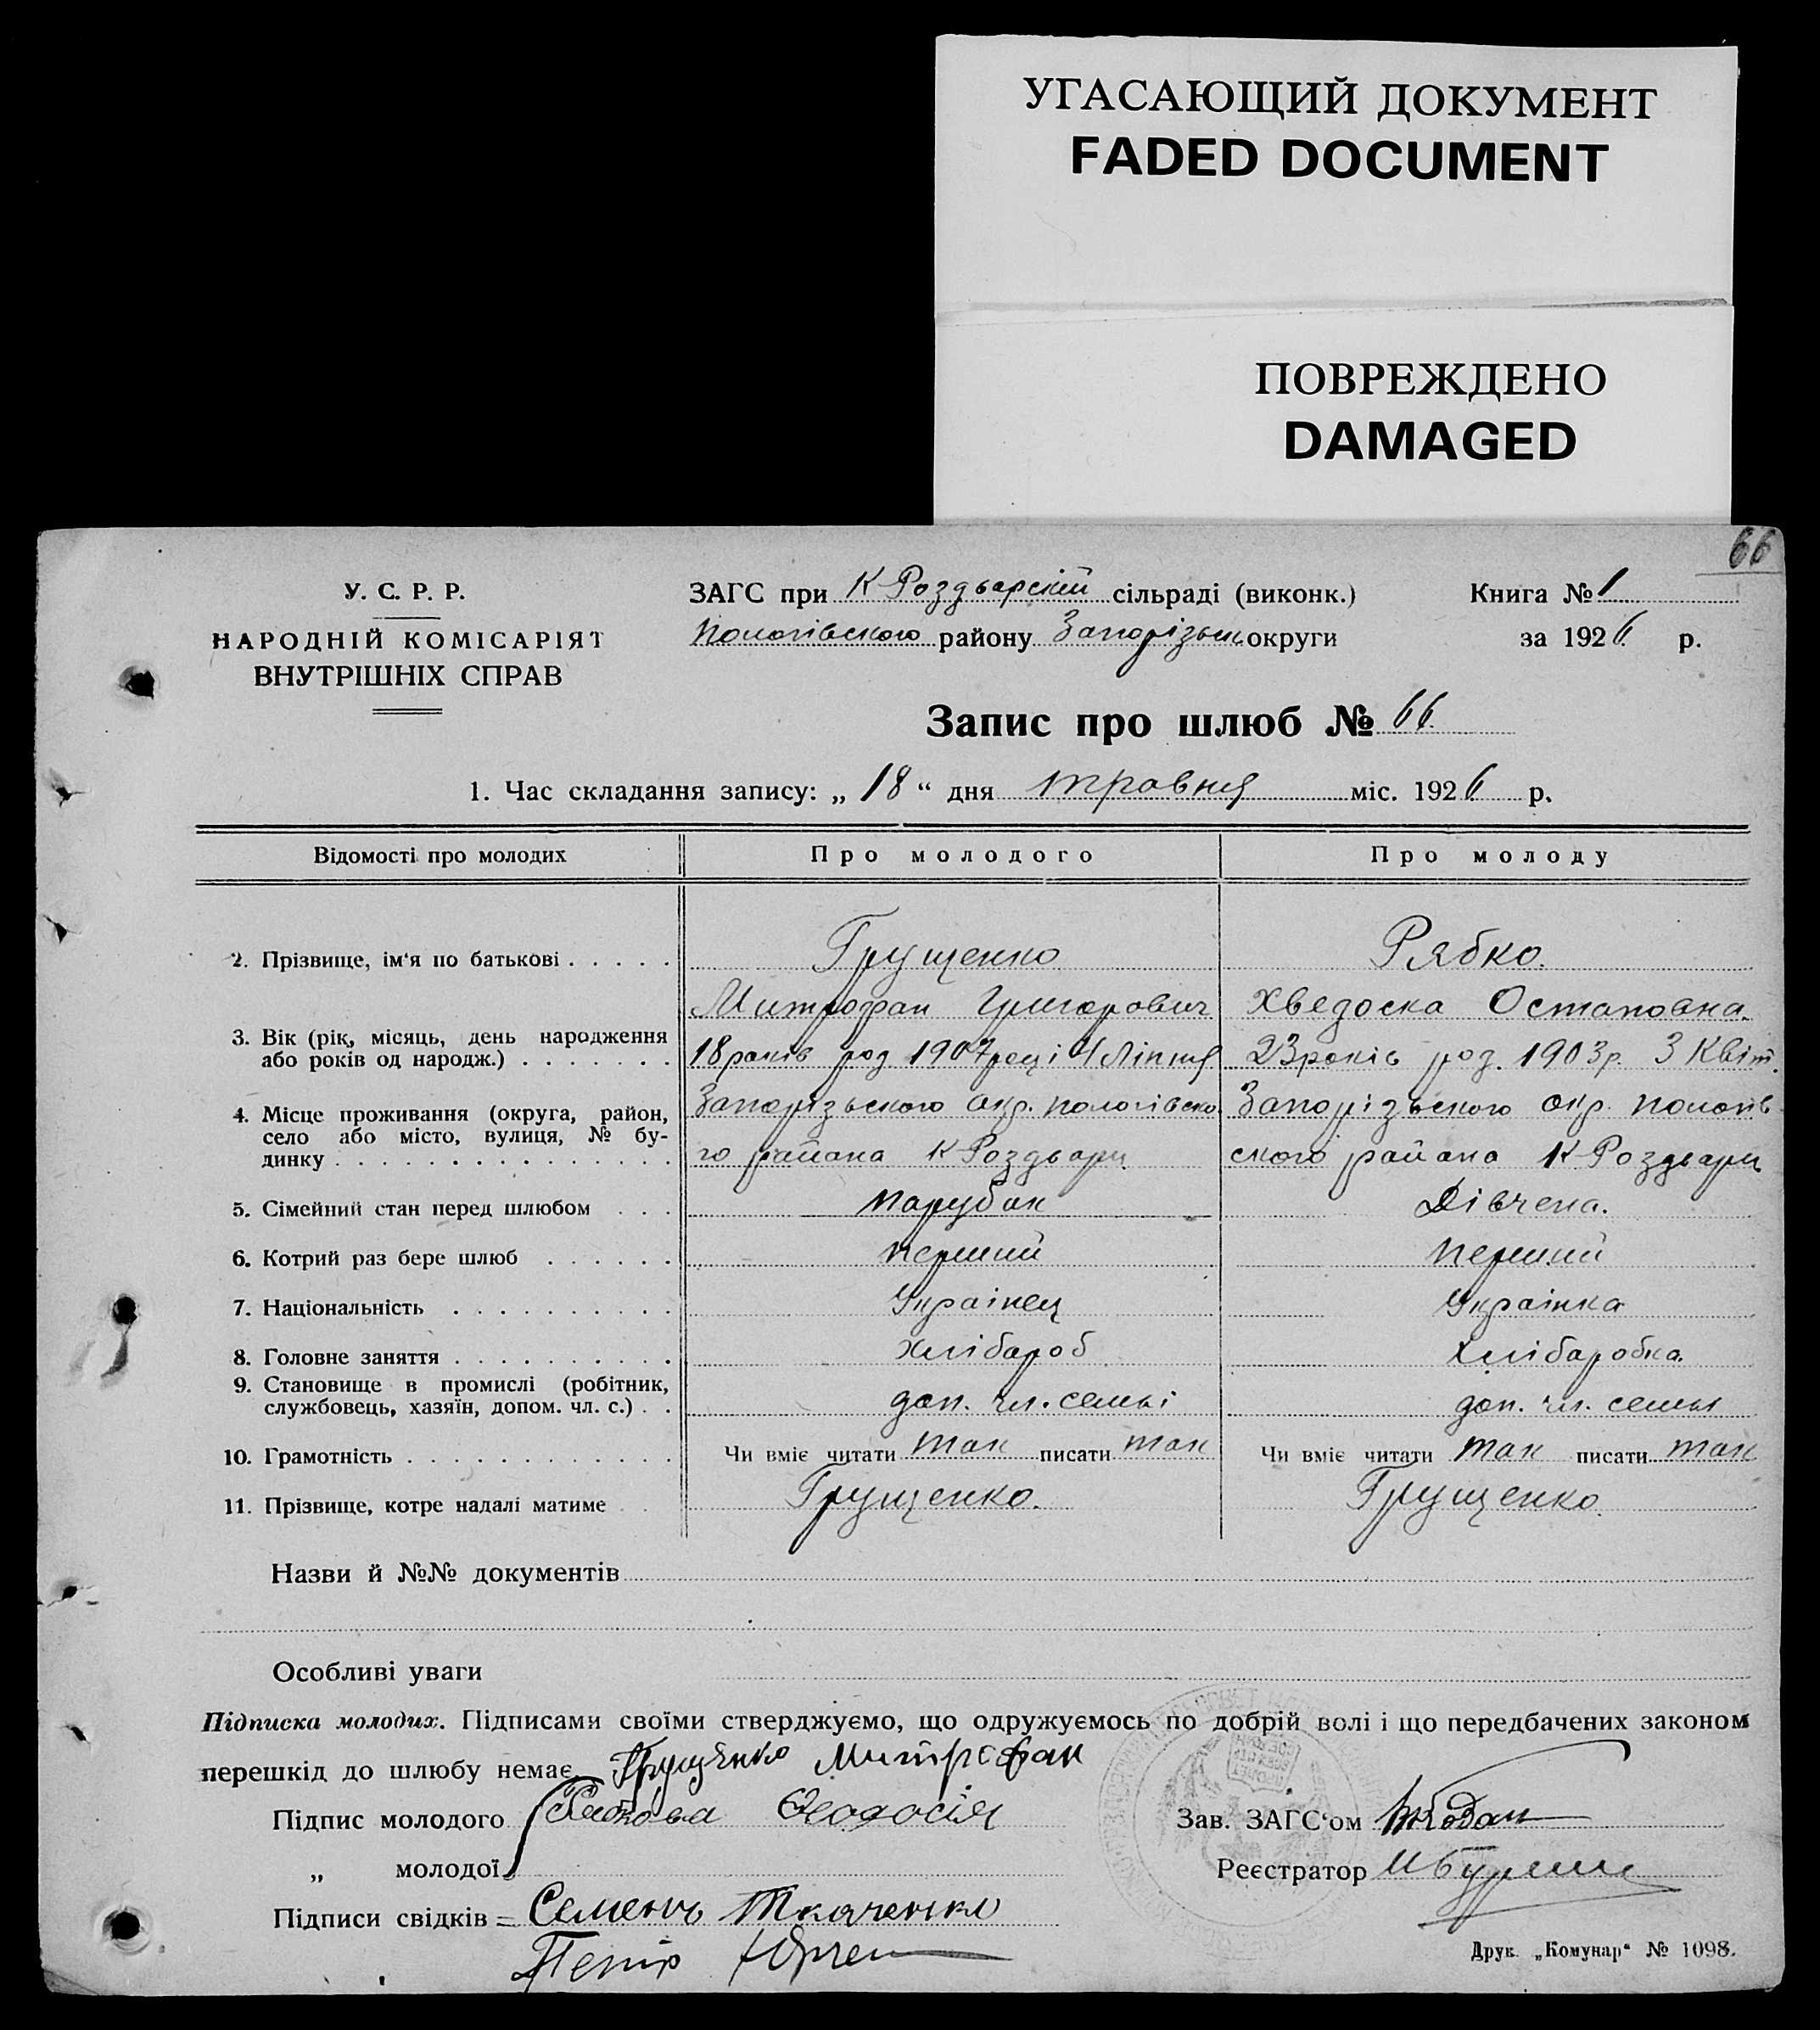 УГАСАЮЩИЙ ДОКУМЕНТ
FADED DOCUMENT
ПОВРЕЖДЕНО
DAMAGED
66
У. С. Р. Р.
НАРОДНІЙ КОМІСАРІЯТ
ВНУТРІШНІХ СПРАВ
ЗАГС при К Роздьарскій сільраді (виконк.)
Пологівского району Запорізьк округи
Книга № 1
за 1926 р.
Запис про шлюб № 66
1. Час складання запису: „ 18 “ дня травня міс. 1926 р.
Відомості про молодих
Про молодого
Про молоду
2. Прізвище, ім'я по батькові
Грущенко
Рябко.
Митрофан Григорович
Хведоска Остаповна.
3. Вік (рік, місяць, день народження
або років од народж.)
18 років род 1907 році 4 Ліпня
23 років род. 1903 р. 3 Квіт.
4. Місце проживання (округа, район,
село або місто, вулиця, № бу-
динку
Запорізького окр. пологівско
го района К Роздьари
Запорізького окр. пологів
ского района К Роздьари
5. Сімейний стан перед шлюбом
парубак
Дівчена.
6. Котрий раз бере шлюб
перший
перший
7. Національність
Украінец
Украінка
8. Головне заняття
Хлібароб
Хлібаробка.
9. Становище в промислі (робітник,
службовець, хазяїн, допом. чл. с.)
доп. чл. семьі
доп. чл. семьі
10. Грамотність
Чи вміє читати так писати так
Чи вміє читати так писати так
11. Прізвище, котре надалі матиме
Грущенко.
Грущенко.
Назви й №№ документів
Особливі уваги
Підписка молодих. Підписами своїми стверджуємо, що одружуємось по добрій волі і що передбачених законом
перешкід до шлюбу немає. Грущенко Митрофан
Підпис молодого Рябкова Феодосія
„ молодої
Зав. ЗАГС‘ом
Реєстратор
Підписи свідків = Семенъ Ткаченко
Петр
Друк. „Комунар“ № 1098.